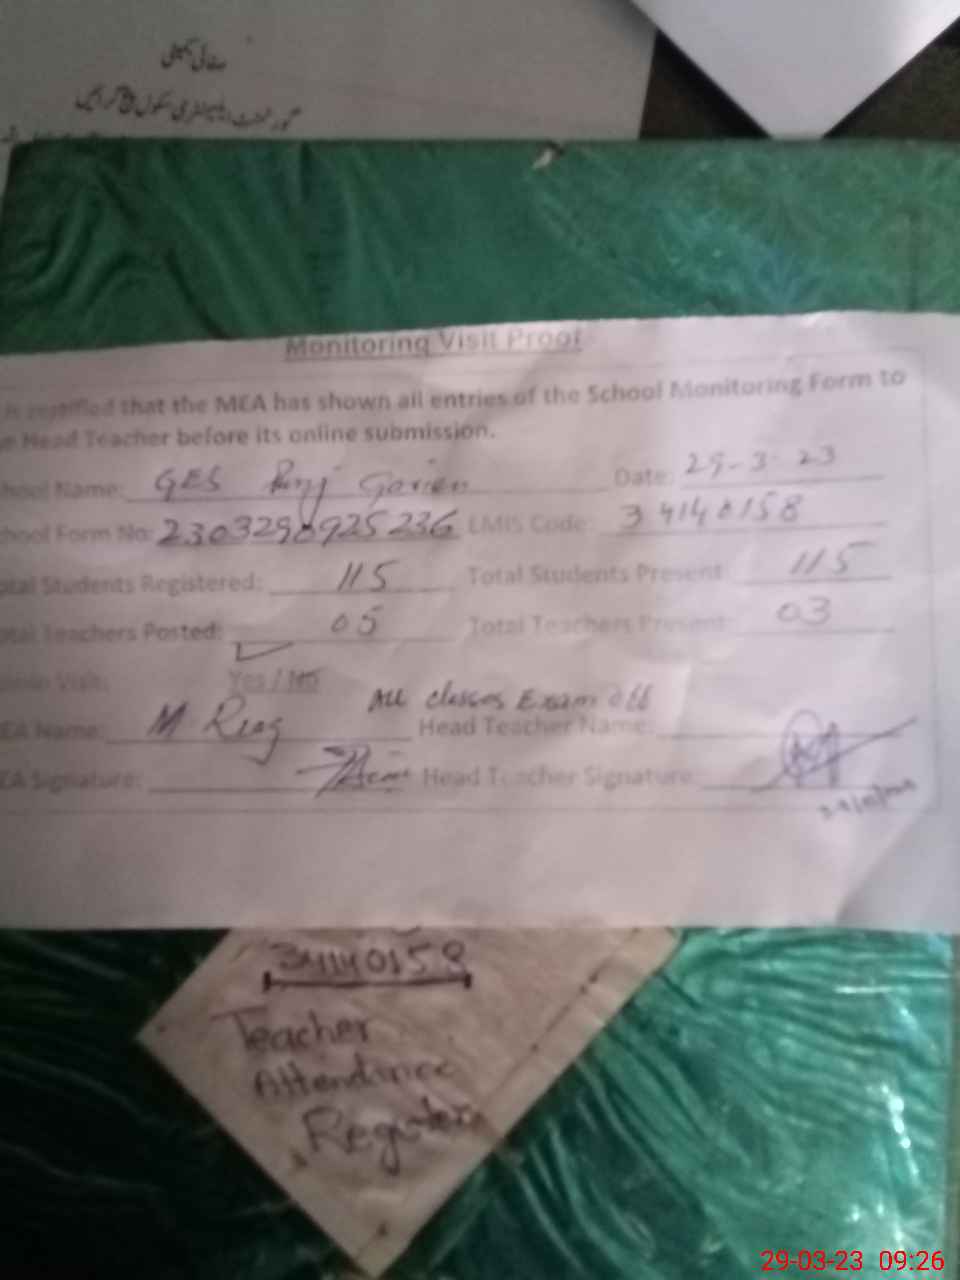 صفائی کمیٹی
گورنمنٹ ایلیمنٹری سکول پنج گرائیں
Monitoring Visit Proof
is certified that the MEA has shown all entries of the School Monitoring Form to
Head Teacher before its online submission.
School Name: GES Punj Garien Date: 29-3-23
School Form No: 2303290925236 LMIS Code: 34140158
Total Students Registered: 115 Total Students Present: 115
Total Teachers Posted: 05 Total Teachers Present: 03
Admin Visit: Yes / No
All classes Exam off
MEA Name: M Riaz Head Teacher Name:
MEA Signature: Head Teacher Signature:
34140158
Teacher
Attendance
Register
29-03-23 09:26